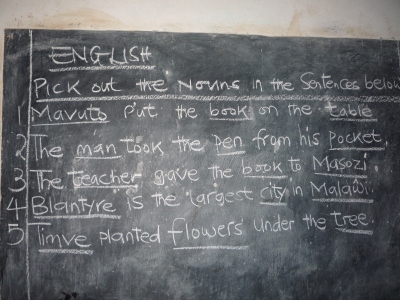 ENGLISH
Pick out the Nouns in the Sentences below
1 Mavuto put the book on the table
2 The man took the pen from his pocket.
3 The teacher gave the book to Masozi.
4 Blantyre is the largest city in Malawi.
5 Timve planted flowers under the tree.